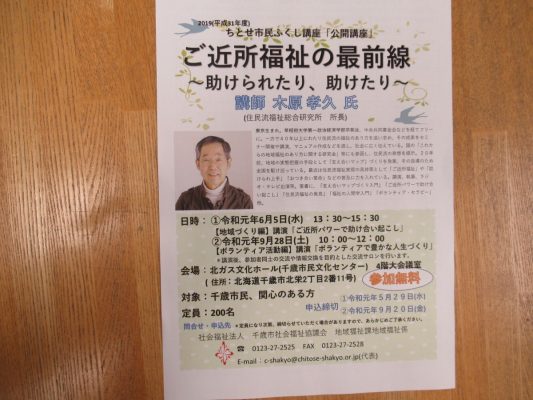 2019(平成31年度)
ちとせ市民ふくし講座「公開講座」
ご近所福祉の最前線
～助けられたり、助けたり～
講師 木原 孝久 氏
(住民流福祉総合研究所 所長)
日時：①令和元年6月5日(水) 13：30～15：30
【地域づくり編】講演「ご近所パワーで助け合い起こし」
②令和元年9月28日(土) 10：00～12：00
【ボランティア活動編】講演「ボランティアで豊かな人生づくり」
＊講演後、参加者同士の交流や情報交換を目的とした交流サロンを行います。
会場：北ガス文化ホール(千歳市民文化センター) 4階大会議室
(住所：北海道千歳市北栄2丁目2番11号)
参加無料
対象：千歳市民、関心のある方
申込締切 ①令和元年5月29日(水)
②令和元年9月20日(金)
定員：200名
問合せ・申込先 ＊定員になり次第、締切らせていただく場合がありますので、あらかじめご了承ください。
社会福祉法人 千歳市社会福祉協議会 地域福祉課地域福祉係
☎ 0123-27-2525 FAX 0123-27-2528
E-mail：c-shakyo@chitose-shakyo.or.jp(代表)